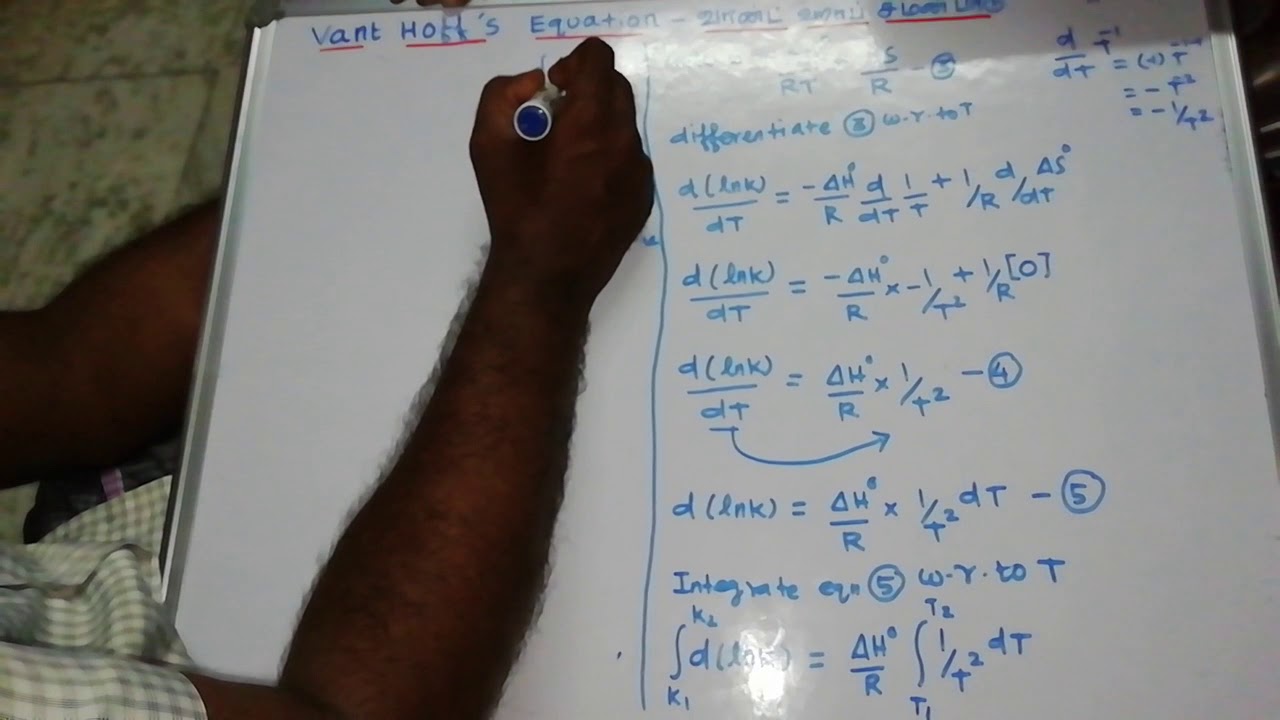 Vant Hoff's Equation –
RT S/R – ③
d/dT T⁻¹ = (-1) T⁻¹⁻¹
= - T⁻²
= - 1/T²
differentiate ③ w.r.to T
d(lnK)/dT = -ΔH°/R d/dT 1/T + 1/R d/dT ΔS°
d(lnK)/dT = -ΔH°/R × -1/T² + 1/R [0]
d(lnK)/dT = ΔH°/R × 1/T² – ④
d(lnK) = ΔH°/R × 1/T² dT – ⑤
Integrate eqn ⑤ w.r.to T
∫ K₁ K₂ d(lnK) = ΔH°/R ∫ T₁ T₂ 1/T² dT